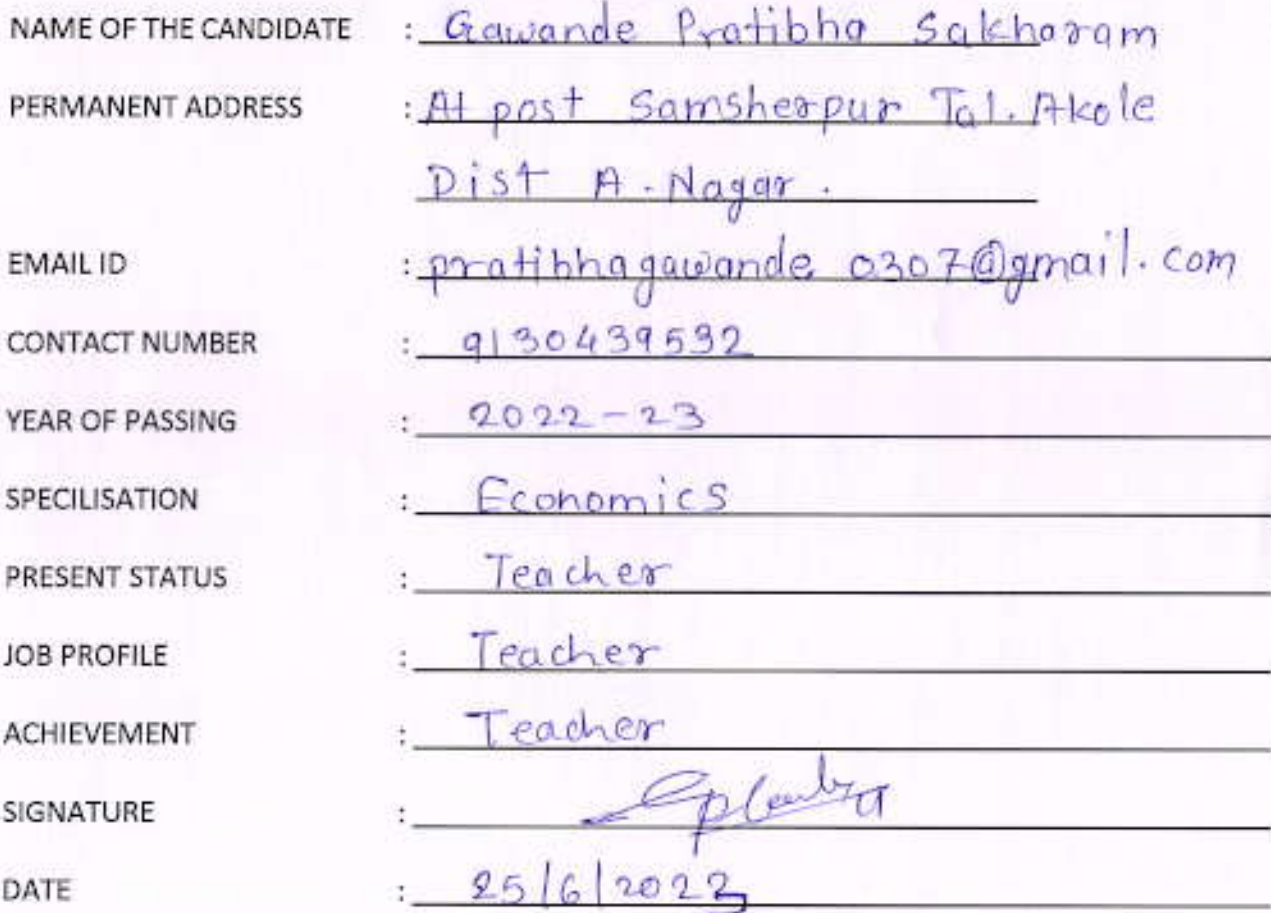 NAME OF THE CANDIDATE : Gawande Pratibha Sakharam
PERMANENT ADDRESS : At post Samsherpur Tal. Akole
Dist A. Nagar.
EMAIL ID : pratibhagawande 0307@gmail.com
CONTACT NUMBER : 9130439532
YEAR OF PASSING : 2022-23
SPECILISATION : Economics
PRESENT STATUS : Teacher
JOB PROFILE : Teacher
ACHIEVEMENT : Teacher
SIGNATURE :
DATE : 25/6/2023